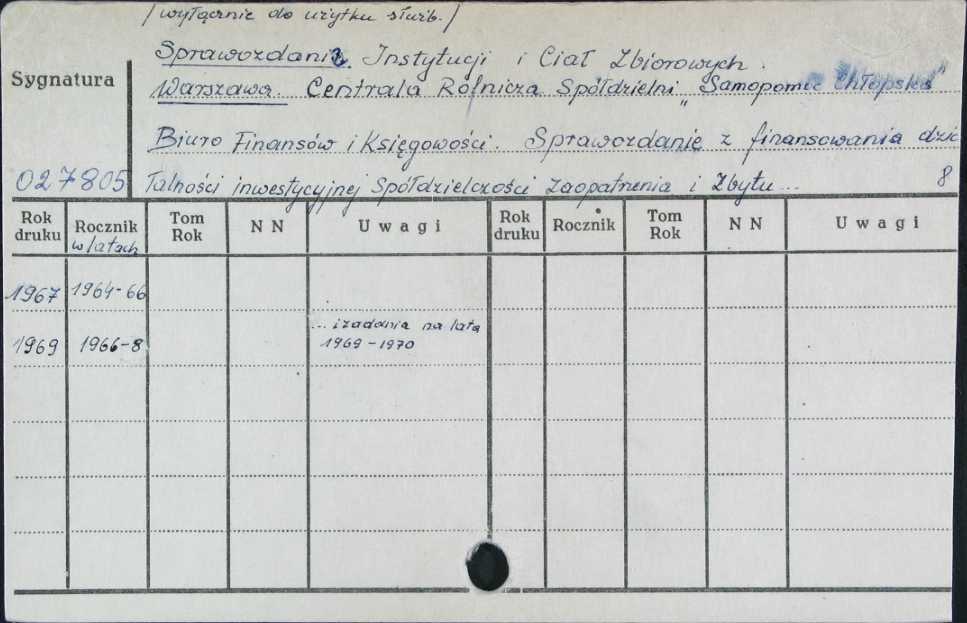 /wyłącznie do użytku służb./
Sprawozdania Instytucji i Ciał Zbiorowych.
Sygnatura
Warszawa. Centrala Rolnicza Spółdzielni „Samopomoc Chłopska"
Biuro Finansów i Księgowości. Sprawozdanie z finansowania dzia
027805 łalności inwestycyjnej Spółdzielczości Zaopatrzenia i Zbytu... 8
Rok druku Rocznik w latach Tom Rok N N Uwagi Rok druku Rocznik Tom Rok N N Uwagi
1967 1964-66
1969 1966-8 ... i zadania na lata
1969-1970